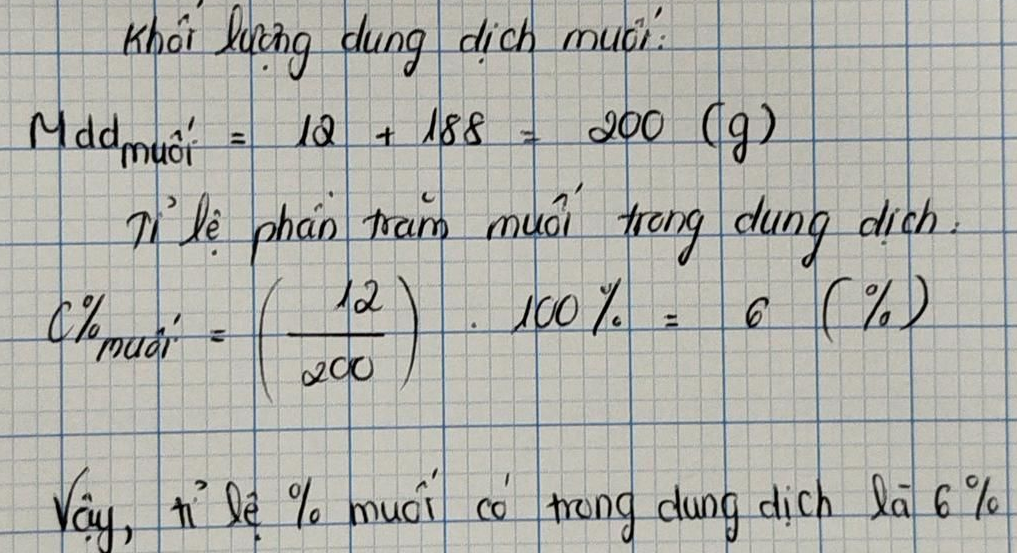 Khối lượng dung dịch muối:
Mdd muối = 12 + 188 = 200 (g)
Tỉ lệ phần trăm muối trong dung dịch:
C% muối = (12/200) . 100% = 6 (%)
Vậy, tỉ lệ % muối có trong dung dịch là 6%